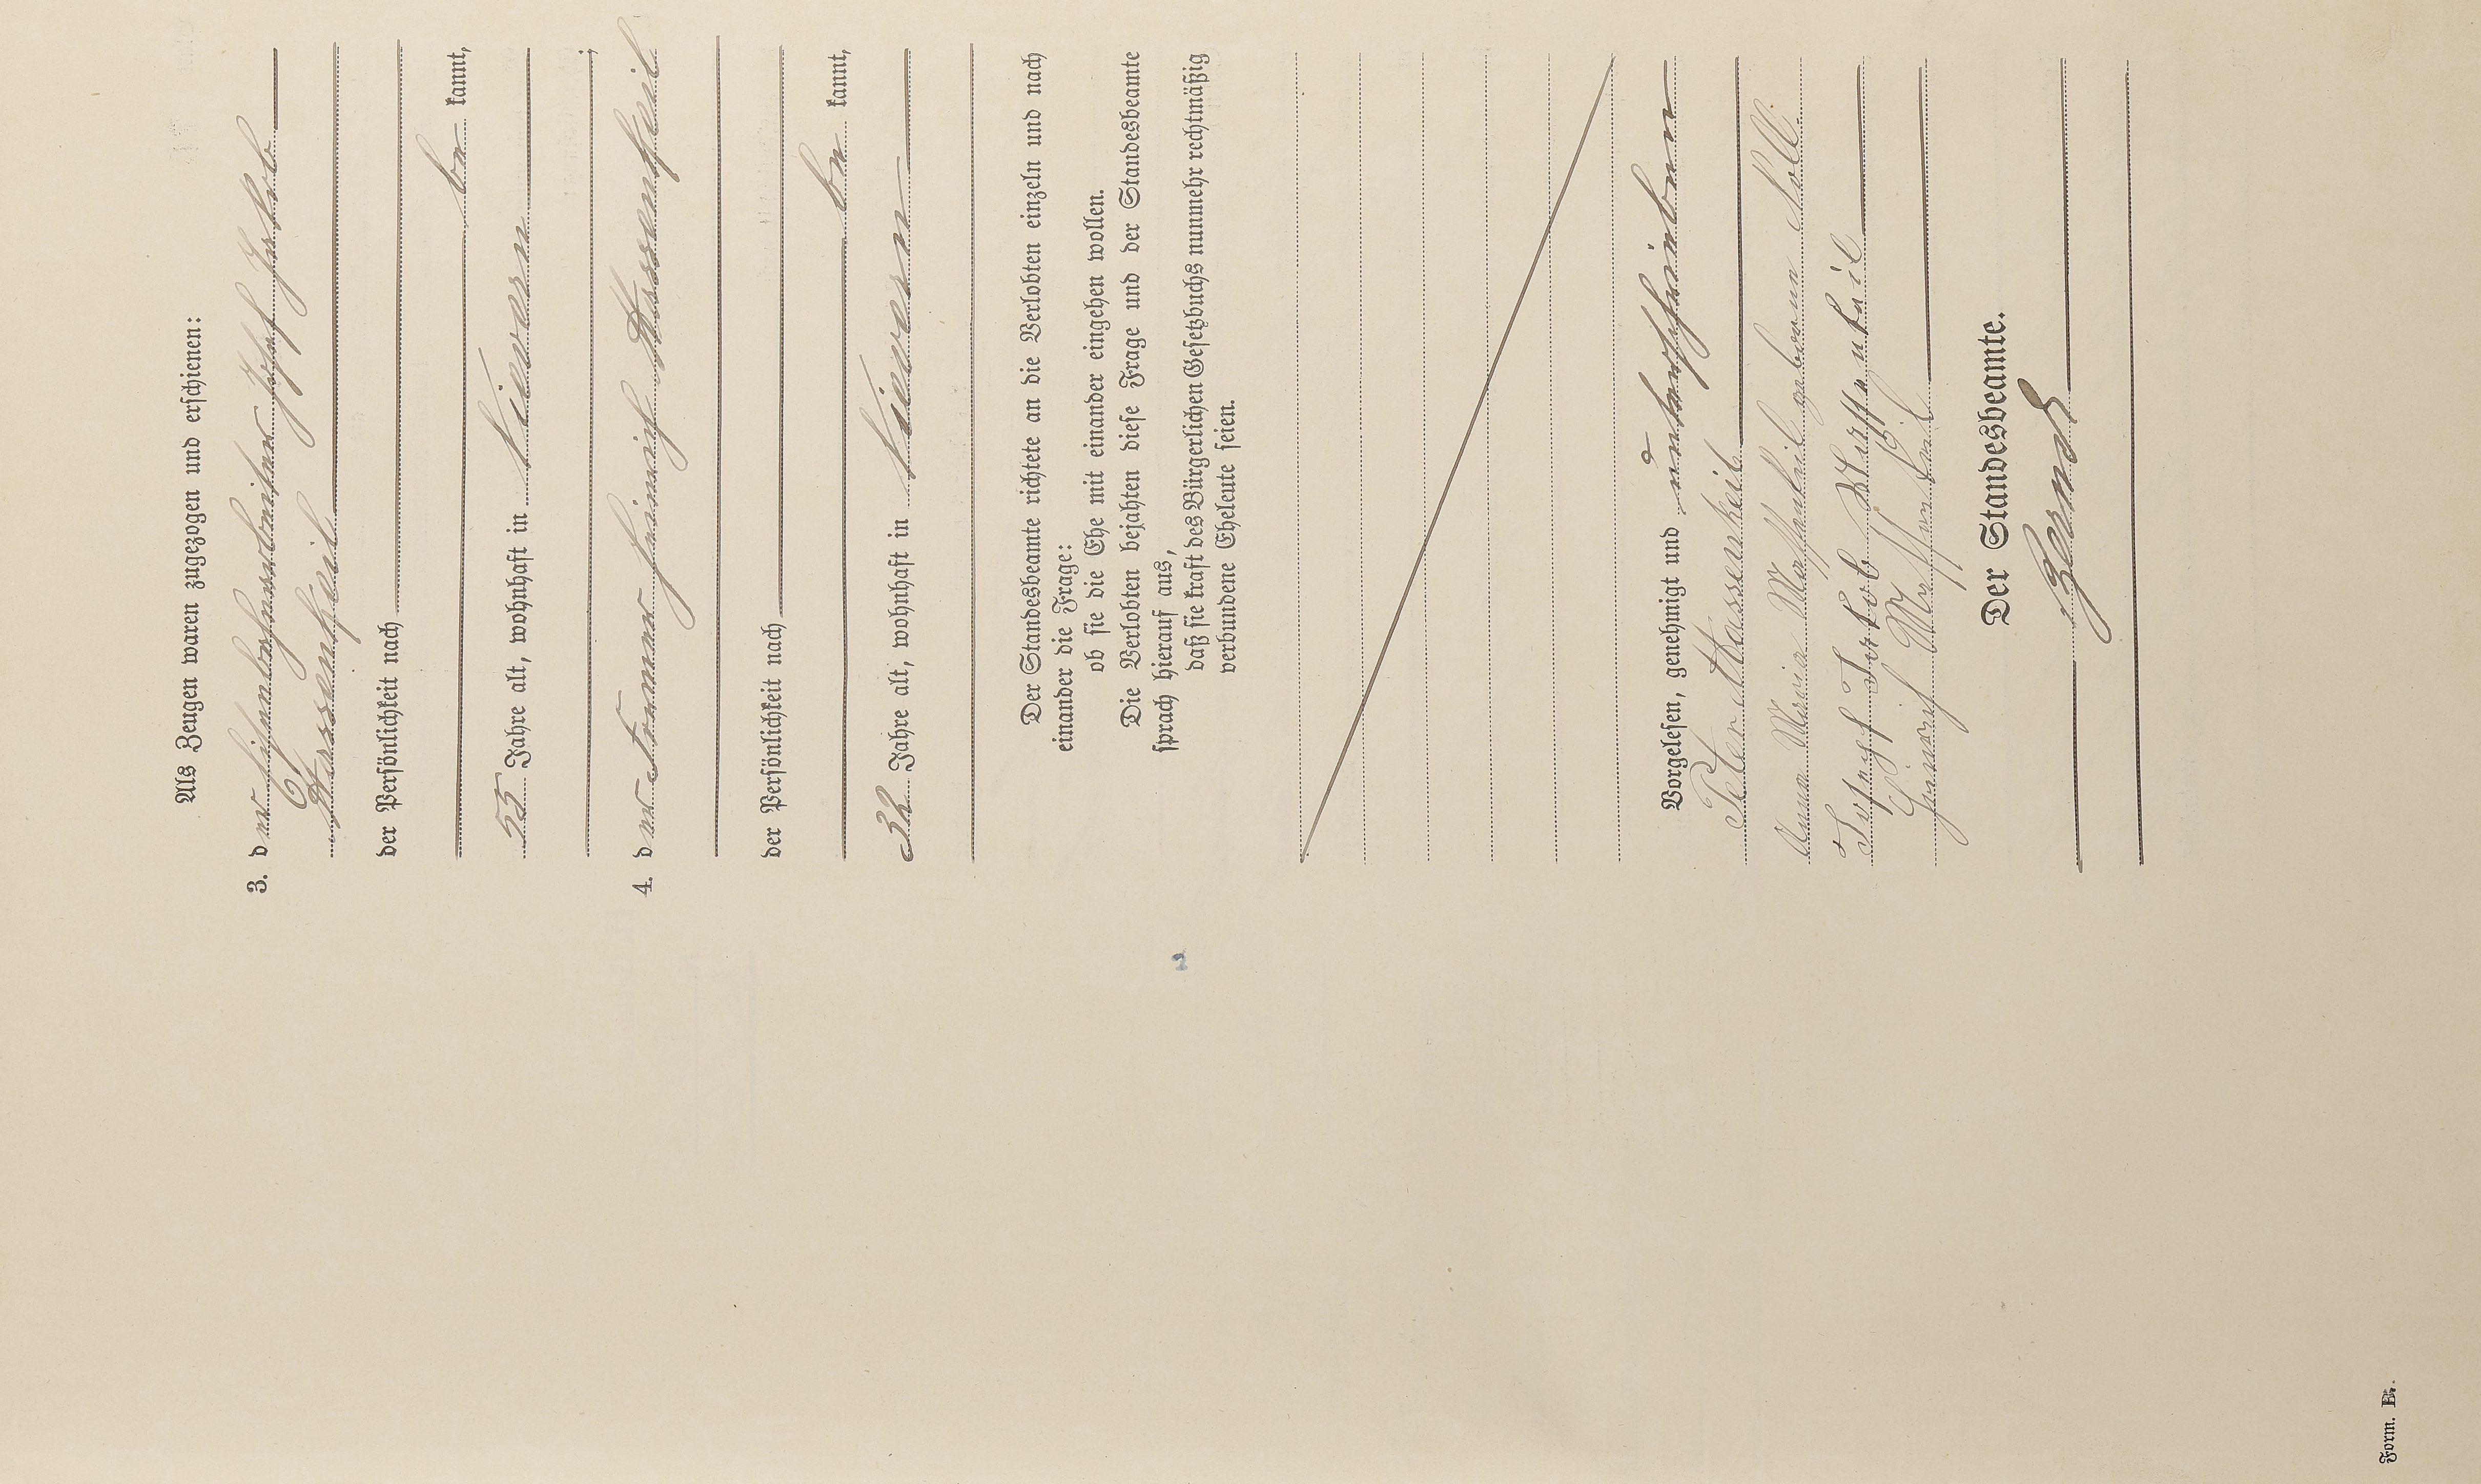 Als Zeugen waren zugezogen und erschienen:
3. der Eisenbahnarbeiter Josef Jakob
Massenkeil
der Persönlichkeit nach
be kannt,
55 Jahre alt, wohnhaft in Nievern
;
4. der Former Heinrich Massenkeil
der Persönlichkeit nach
be kannt,
32 Jahre alt, wohnhaft in Nievern
Der Standesbeamte richtete an die Verlobten einzeln und nach
einander die Frage:
ob sie die Ehe mit einander eingehen wollen.
Die Verlobten bejahten diese Frage und der Standesbeamte
sprach hierauf aus,
daß sie kraft des Bürgerlichen Gesetzbuchs nunmehr rechtmäßig
verbundene Eheleute seien.
Vorgelesen, genehmigt und unterschrieben
Peter Massenkeil
Anna Maria Massenkeil geborene Noll.
Josef Jakob Massenkeil
Heinrich Massenkeil
Der Standesbeamte.
Form. B.